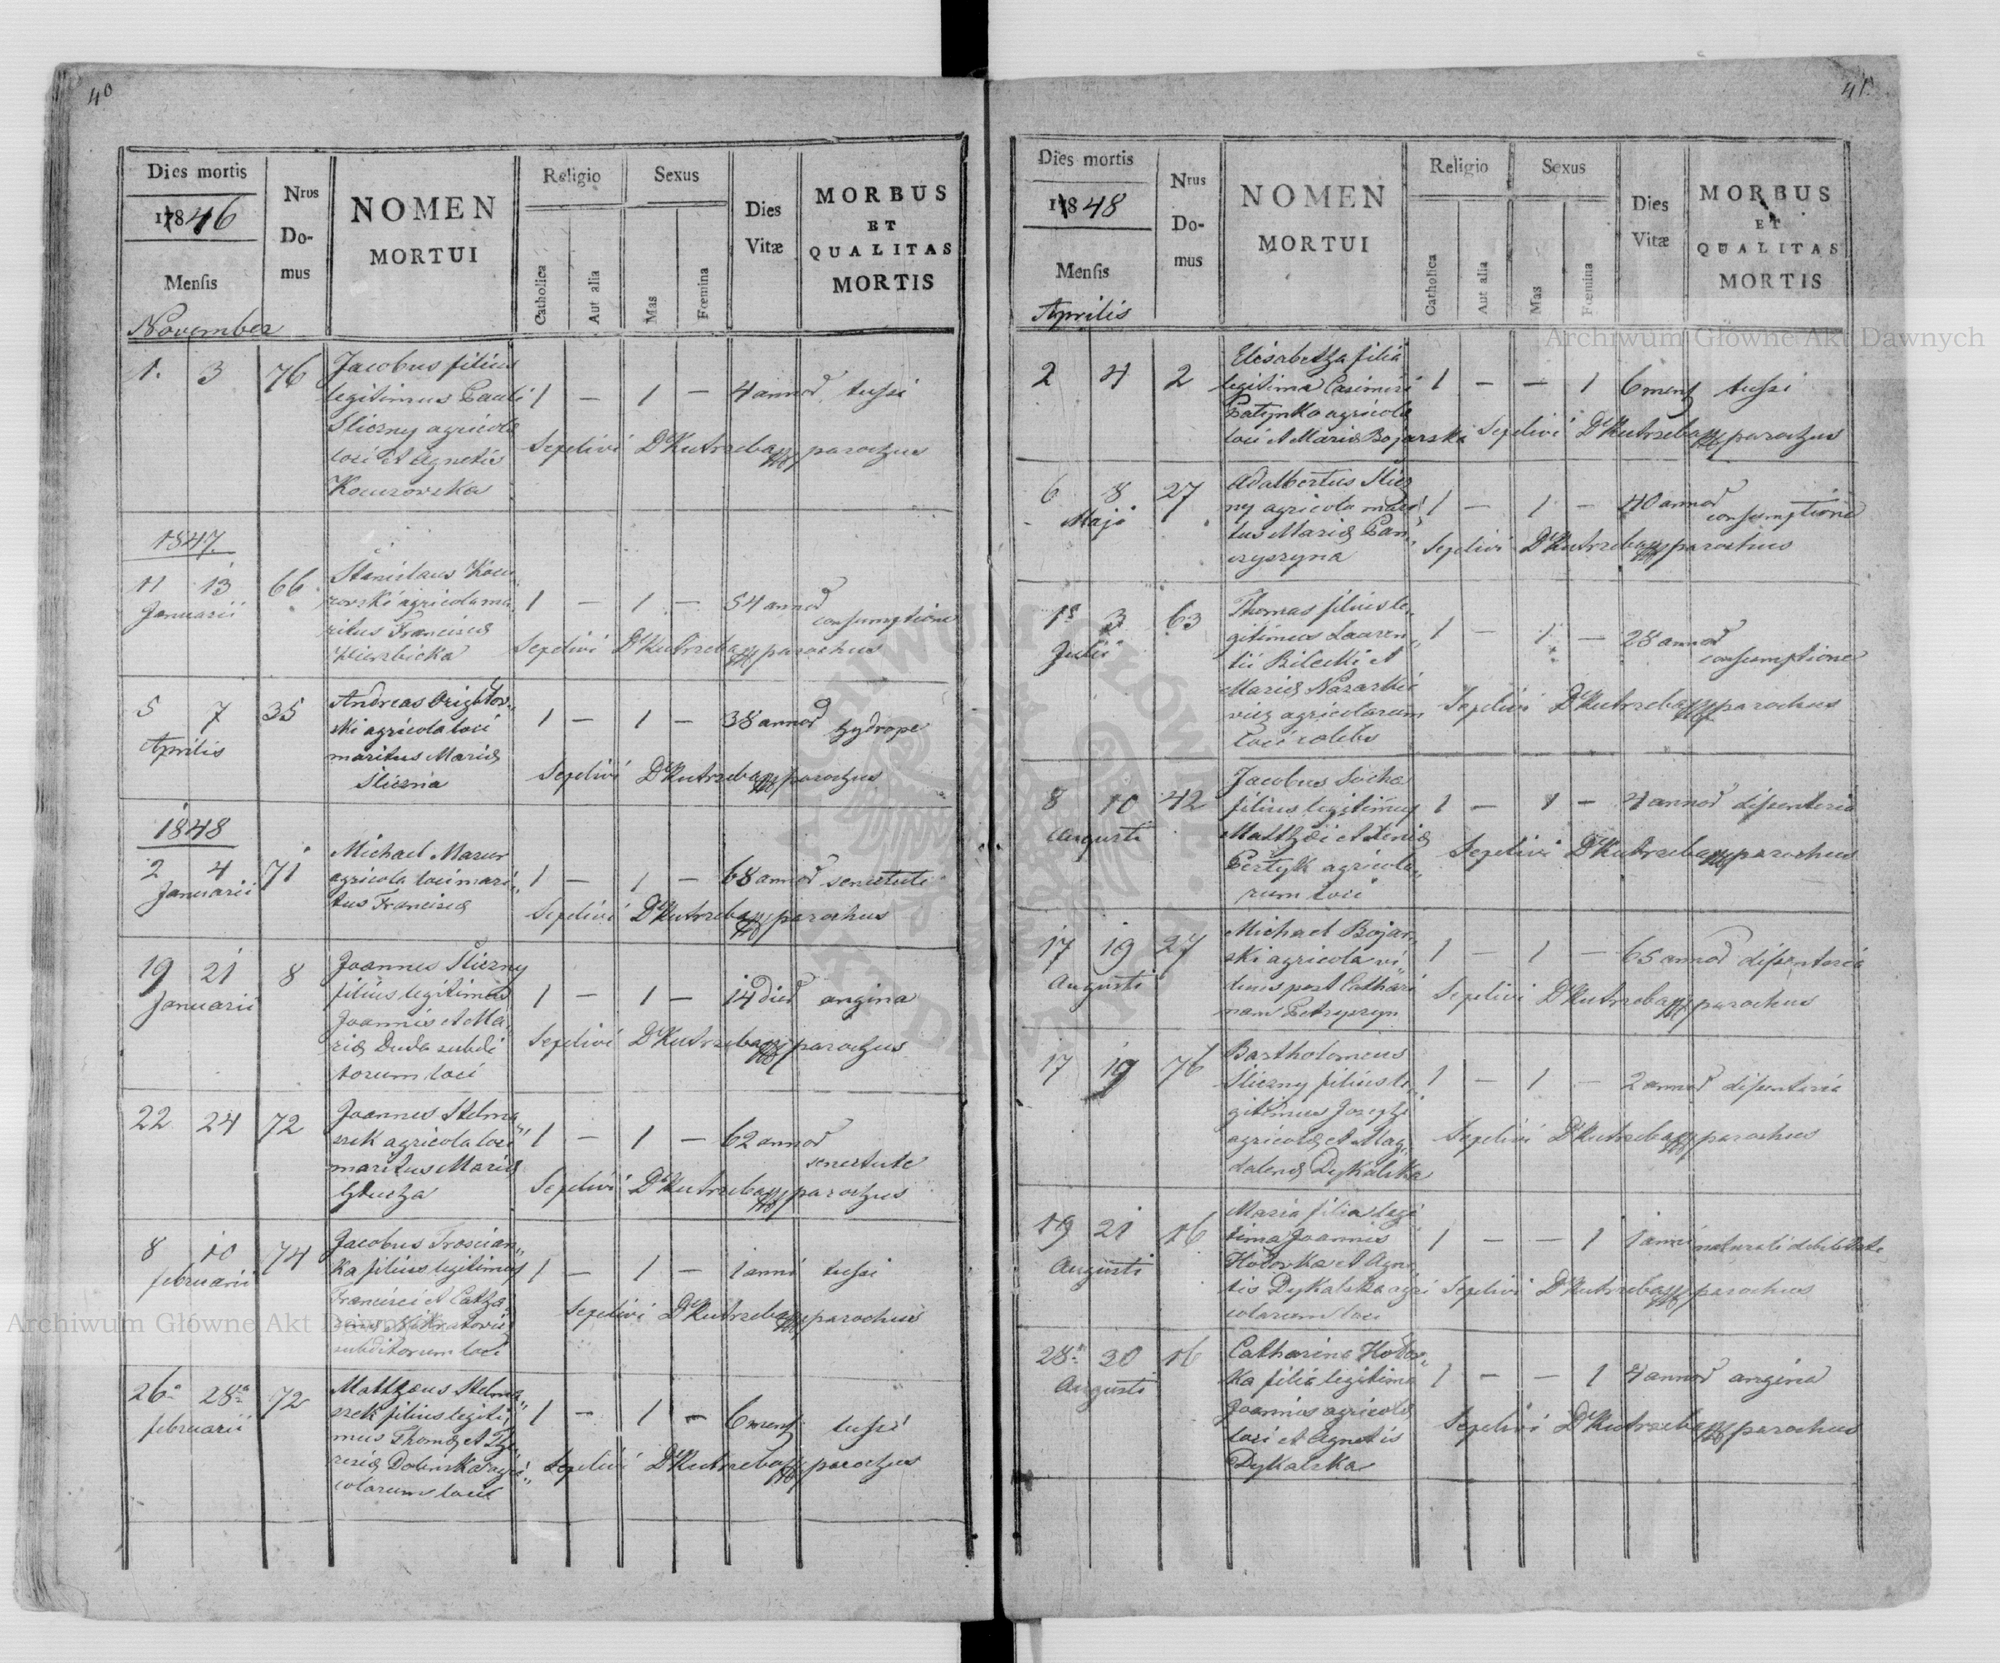 40
Dies mortis
1846
Mensis
November
Nrus
Do-
mus
NOMEN
MORTUI
Religio
Catholica
Aut alia
Sexus
Mas
Fœmina
Dies
Vitæ
MORBUS
ET
QUALITAS
MORTIS
1. 3 76
Jacobus filius
legitimus Pauli
Sliczny agricola
loci et Agnetis
Kocurovska
1 — 1 — 4 annor tussi
Sepelivi Dd Kutrzeba parochus
1847
11 13 66
Januarii
Stanislaus Kocu
rovski agricola ma
ritus Francisca
Wierzbicka
1 — 1 — 54 annor
consumptione
Sepelivi Dd Kutrzeba parochus
5 7 35
Aprilis
Andreas
ski agricola loci
maritus Maria
Sliczna
1 — 1 — 38 annor hydrope
Sepelivi Dd Kutrzeba parochus
1848
2 4 71
Januarii
Michael Mazur
agricola loci mari
tus Francisca
1 — 1 — 68 annor senectute
Sepelivi Dd Kutrzeba parochus
19 21 8
Januarii
Joannes Sliczny
filius legitimus
Joannis et Ma
ria Duda subdi
torum loci
1 — 1 — 14 dier angina
Sepelivi Dd Kutrzeba parochus
22 24 72
Joannes Stelma
szek agricola loci
maritus Maria
1 — 1 — 62 annor
senectute
Sepelivi Dd Kutrzeba parochus
8 10 74
februarii
Jacobus Troscian
ka filius legitimus
Francisci et Catha
subditorum loci
1 — 1 — 1 anni tussi
Sepelivi Dd Kutrzeba parochus
26a 28a 72
februarii
Matthæus Stelma
szek filius legiti
mus Thoma et The
resia Dolinska agri
colarum loci
1 — 1 — 6 mens tussi
Sepelivi Dd Kutrzeba parochus
41
Dies mortis
1848
Mensis
Aprilis
Nrus
Do-
mus
NOMEN
MORTUI
Religio
Catholica
Aut alia
Sexus
Mas
Fœmina
Dies
Vitæ
MORBUS
ET
QUALITAS
MORTIS
2 4 2
Elisabetha filia
legitima Casimiri
Patynko agricola
loci et Maria Bojarska
1 — — 1 6 mens tussi
Sepelivi Dd Kutrzeba parochus
6 8 27
Maji
Adalbertus Slicz
ny agricola mari
tus Maria Pan
czyszyna
1 — 1 — 40 annor
consumptione
Sepelivi Dd Kutrzeba parochus
1s 3 63
Julii
Thomas filius le
gitimus Lauren
tii Bilecki et
Maria Nazarkie
vicz agricolarum
loci
1 — 1 — 28 annor
consumptione
Sepelivi Dd Kutrzeba parochus
8 10 42
Augusti
Jacobus Socha
filius legitimus
Matthæi et
agricola
rum loci
1 — 1 — 4 annor disenteria
Sepelivi Dd Kutrzeba parochus
17 19 27
Augusti
Michael Bojar
ski agricola vi
duus post Cathari
nam Petryszyn
1 — 1 — 65 annor disenteria
Sepelivi Dd Kutrzeba parochus
17 19 76
Bartholomeus
Sliczny filius le
gitimus Josephi
agricola et Mag
dalena Dykalska
1 — 1 — 2 annor disenteria
Sepelivi Dd Kutrzeba parochus
19 21 16
Augusti
Maria filia legi
tima Joannis
Hodovka et Agne
tis Dykalska agri
colarum loci
1 — — 1 1 anni naturali debilitate
Sepelivi Dd Kutrzeba parochus
28a 30 16
Augusti
Catharina Hodov
ka filia legitima
Joannis agricola
loci et Agnetis
Dykalska
1 — — 1 4 annor angina
Sepelivi Dd Kutrzeba parochus
Archiwum Główne Akt Dawnych
Archiwum Główne Akt Dawnych
ARCHIWUM GŁÓWNE AKT DAWNYCH